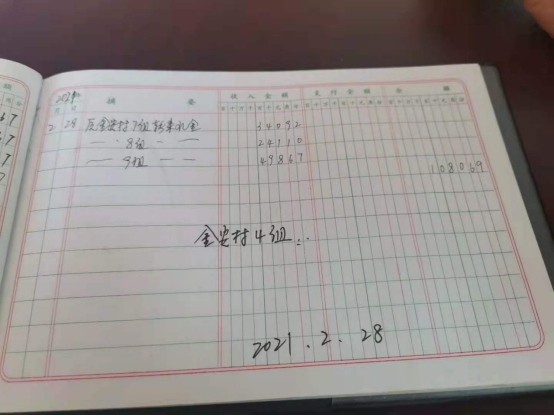 2021年 摘要 收入金额 支付金额 余额
2 28 及金安村7组转来礼金 34092
〃 8组 〃 24110
〃 9组 〃 49867
108069
金安村4组:
2021.2.28